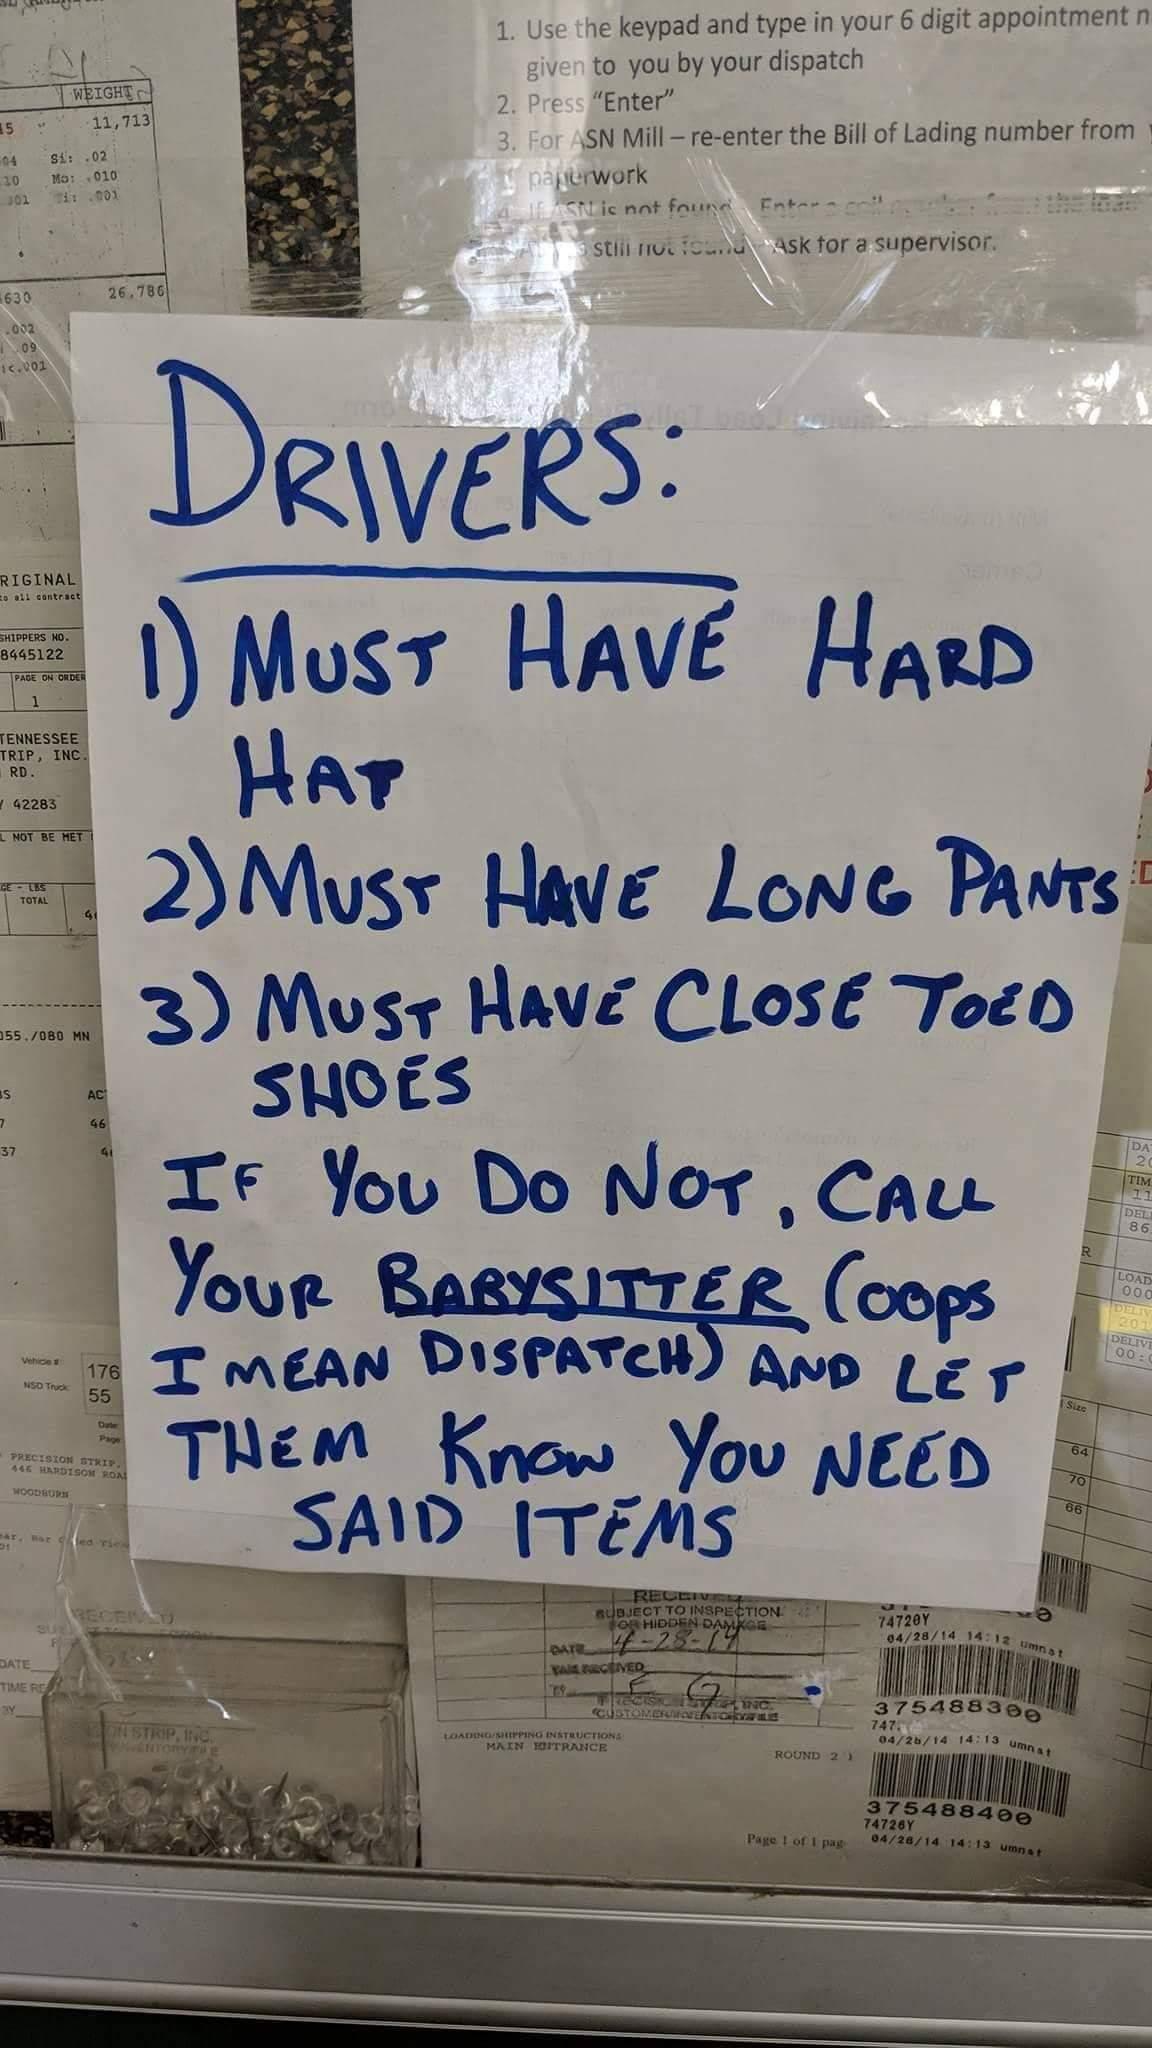 WEIGHT
11,713
Si: .02
Mo: .010
.001
26,786
.002
.09
.001
1. Use the keypad and type in your 6 digit appointment
given to you by your dispatch
2. Press “Enter”
3. For ASN Mill – re-enter the Bill of Lading number from
paperwork
4. If ASN is not found
still not found Ask for a supervisor.
DRIVERS:
1) MUST HAVE HARD
HAT
2) MUST HAVE LONG PANTS
3) MUST HAVE CLOSE TOED
SHOES
IF YOU DO NOT, CALL
YOUR BABYSITTER (OOPS
I MEAN DISPATCH) AND LET
THEM KNOW YOU NEED
SAID ITEMS
SHIPPERS NO.
8445122
PAGE ON ORDER
1
TENNESSEE
INC.
RD.
42283
NOT BE MET
LBS
TOTAL
055./080 MN
46
37
Vehicle #
176
NSD Truck
55
Date
Page
PRECISION STRIP,
446 HARDISON
WOODBURN
RECEIVED
DATE
STRIP, INC.
RECEIVED
SUBJECT TO INSPECTION
FOR HIDDEN DAMAGE
DATE 4-28-14
LOADING/SHIPPING INSTRUCTIONS
MAIN ENTRANCE
ROUND 2
Page 1 of 1
74720Y
04/28/14 14:12 umnst
375488300
04/28/14 14:13 umnst
375488400
74726Y
04/28/14 14:13 umnst
LOAD
Size
64
70
66